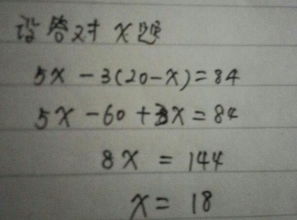 设答对 x 题
5x - 3(20-x) = 84
5x - 60 + 3x = 84
8x = 144
x = 18